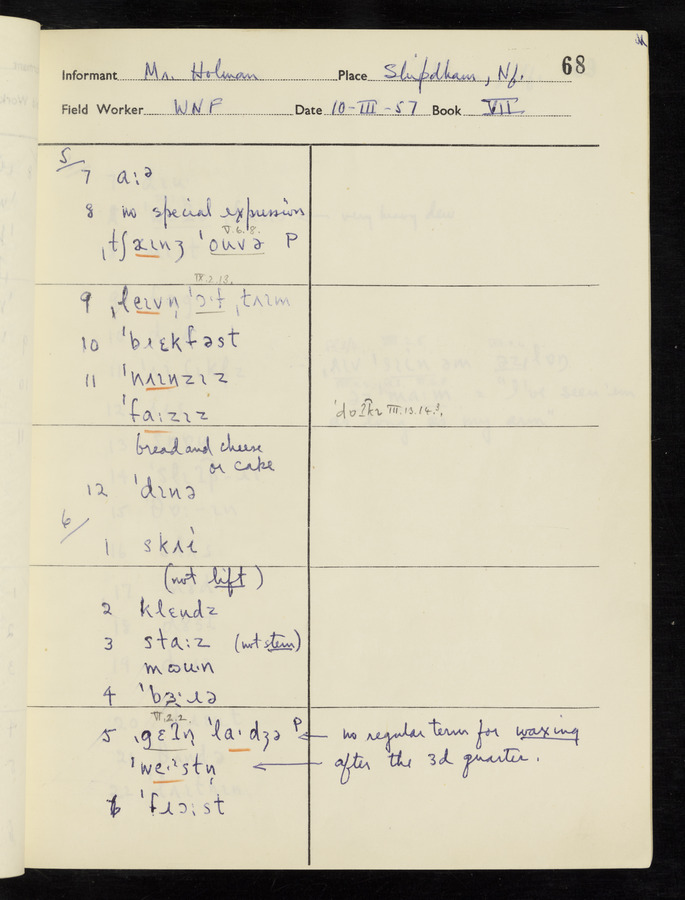 68
Informant Mr. Holman Place Shipdham, Nf.
Field Worker WNF Date 10-III-57 Book VII
5/
7 a:ə
8 no special expression
V.6.8.
ˌtʃæɪnʒ ˈouvə P
IX.2.13.
9 ˌleɪvṇ ˈɔ·t ˌtaɪm
10 ˈbɹɛkfəst
11 ˈnaɪnzɪz
ˈfa:zɪz
III.13.14.
bread and cheese
or cake
12 ˈdɪnə
6/
1 skaɪ
(not lift)
2 klɛudz
3 sta:z (not stern)
moun
4 ˈbɜ·ɹə
VI.2.2.
5 ˌgɛʔṇ ˈla·dʒə P ← no regular term for waxing
ˈweɪstṇ ← after the 3d quarter.
6 ˈfɹɔ:st